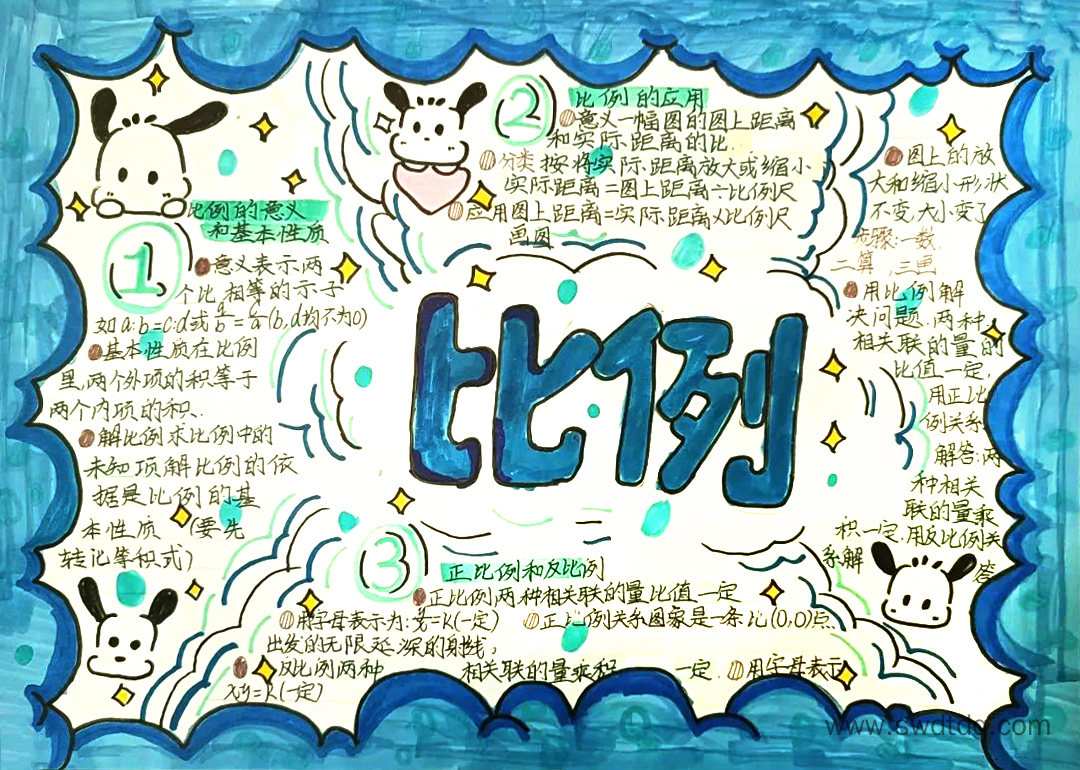 比例
1
比例的意义
和基本性质
意义表示两
个比相等的示子
如a:b=c:d或
(b,d均不为0)
基本性质在比例
里,两个外项的积等于
两个内项的积、
解比例求比例中的
未知项解比例的依
据是比例的基
本性质 (要先
转化等积式)
2
比例的应用
意义一幅图的图上距离
和实际距离的比.
分类按将实际距离放大或缩小
实际距离=图上距离÷比例尺
应用图上距离=实际距离×比例尺
画图
图上的放
大和缩小形状
不变,大小变了
步骤:一数.
二算,三画
用比例解
决问题.两种
相关联的量的
比值一定,
用正比
例关系
解答:两
种相关
联的量乘
积一定.用反比例关
系解
答
3
正比例和反比例
正比例,两种相关联的量比值一定
用字母表示为:y/x=k(一定) 正比例关系图象是一条比(0,0)点
出发的无限延深的射线;
反比例两种 相关联的量乘积 一定.用字母表示
xy=k(一定)
www.swdtdq.com